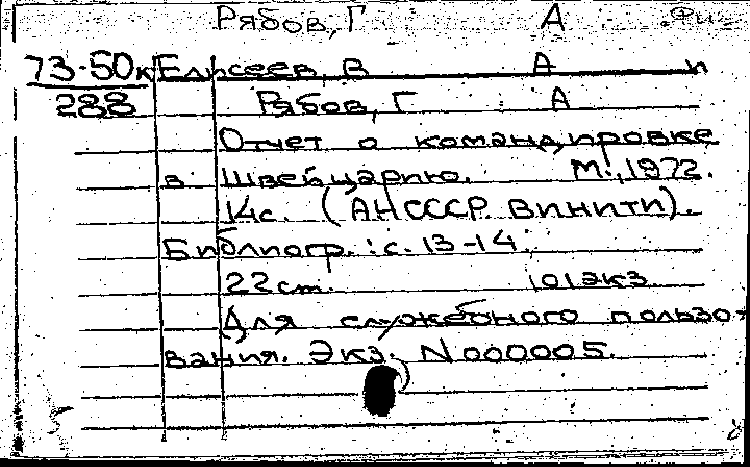 Рябов, Г А Физ
73-50к Елисеев, В А и
288 Рябов, Г А
Отчет о командировке
в Швейцарию. М., 1972.
14с. (АН СССР. ВИНИТИ).
Библиогр.: с. 13-14.
22 см. 101экз
Для служебного пользо-
вания. Экз. N 000005.